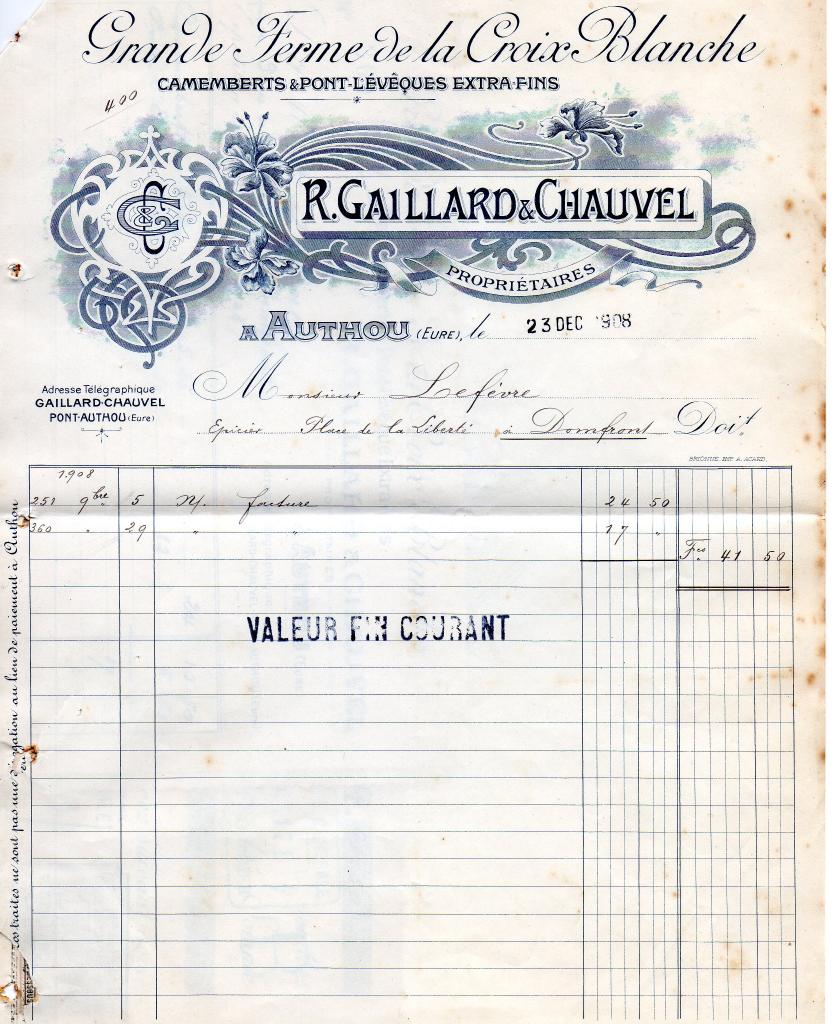 Grande Ferme de la Croix Blanche
CAMEMBERTS & PONT-L'ÉVÊQUES EXTRA-FINS
400
R. GAILLARD & CHAUVEL
PROPRIÉTAIRES
A AUTHOU (EURE), le 23 DEC 1908
Adresse Télégraphique
GAILLARD-CHAUVEL
PONT-AUTHOU (Eure)
Monsieur Lefèvre
Epicier Place de la Liberté à Domfront Doit
BRIONNE. IMP. A. ACARD.
1908
251 9bre 5 M. facture 24 50
360 " 29 " " 17 "
Fcs 41 50
VALEUR FIN COURANT
traites ne sont pas une au lieu de paiement à Authou